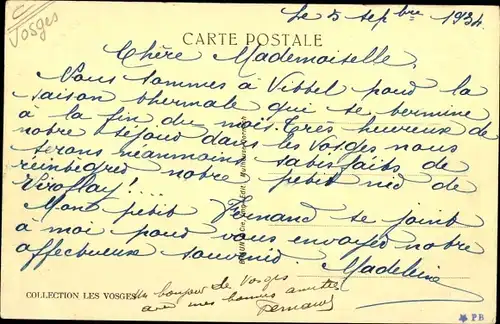 Vosges
Le 5 septbre 1934
CARTE POSTALE
Chère Mademoiselle,
Nous sommes à Vittel pour la
saison thermale qui se termine
à la fin du mois. Très heureux de
notre séjour dans les Vosges nous
serons néanmoins satisfaits de
réintégrer notre petit nid de
Viroflay !...
Mon petit Fernand se joint
à moi pour vous envoyer notre
affectueux souvenir. Madeleine
Un bonjour de Vosges
avec mes bonnes amitiés
Fernand
COLLECTION LES VOSGES
PB